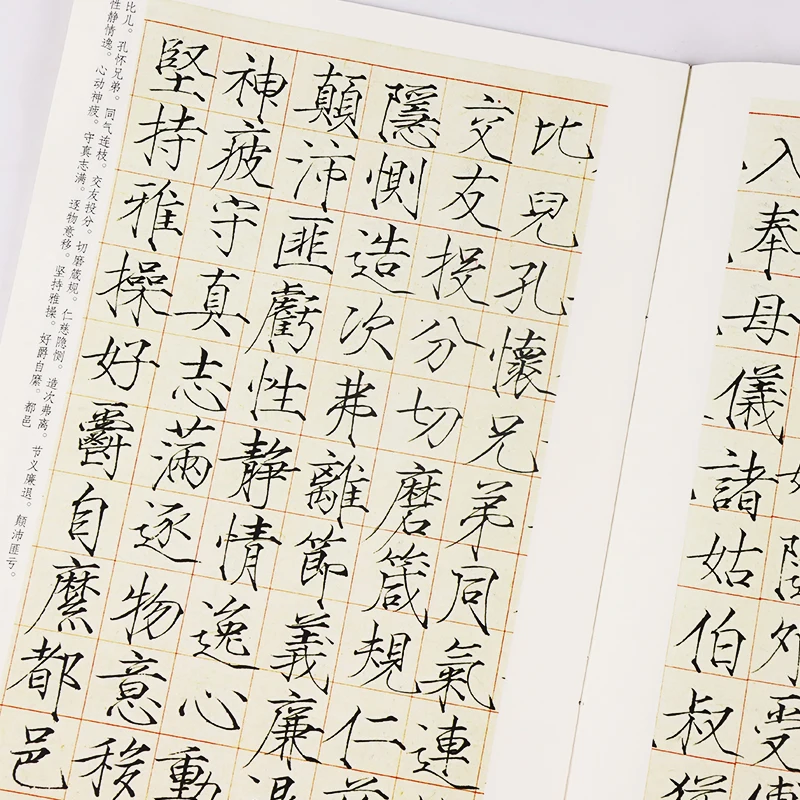 隨外受傅
入奉母儀諸姑伯叔猶
比兒孔懷兄弟同氣連
交友投分切磨箴規仁慈
隱惻造次弗離節義廉退
顛沛匪虧性靜情逸心動
神疲守真志滿逐物意移
堅持雅操好爵自縻都邑
比儿。孔怀兄弟。同气连枝。交友投分。切磨箴规。仁慈隐恻。造次弗离。节义廉退。颠沛匪亏。
性静情逸。心动神疲。守真志满。逐物意移。坚持雅操。好爵自縻。都邑